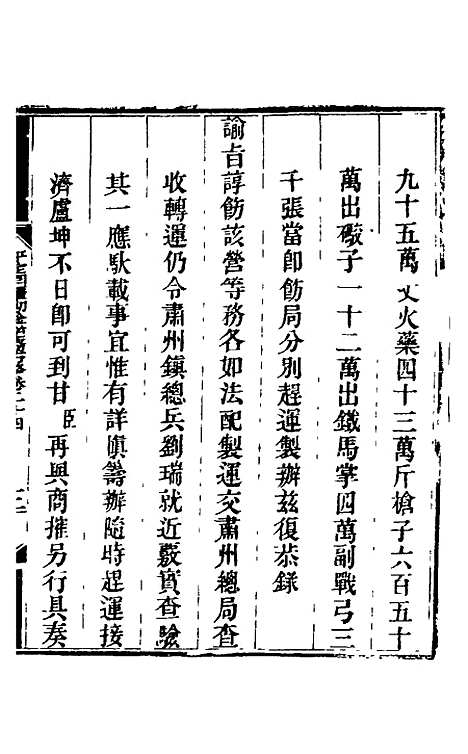 九十五萬丈火藥四十三萬斤槍子六百五十
萬出礮子一十二萬出鐵馬掌四萬副戰弓三
千張當卽飭局分別趕運製辦兹復恭錄
諭旨諄飭該營等務各如法配製運交肅州總局查
收轉運仍令肅州鎮總兵劉瑞就近覈實查驗
其一應馱載事宜惟有詳愼籌辦隨時趕運接
濟盧坤不日卽可到甘臣再與商搉另行具奏
卷二十四